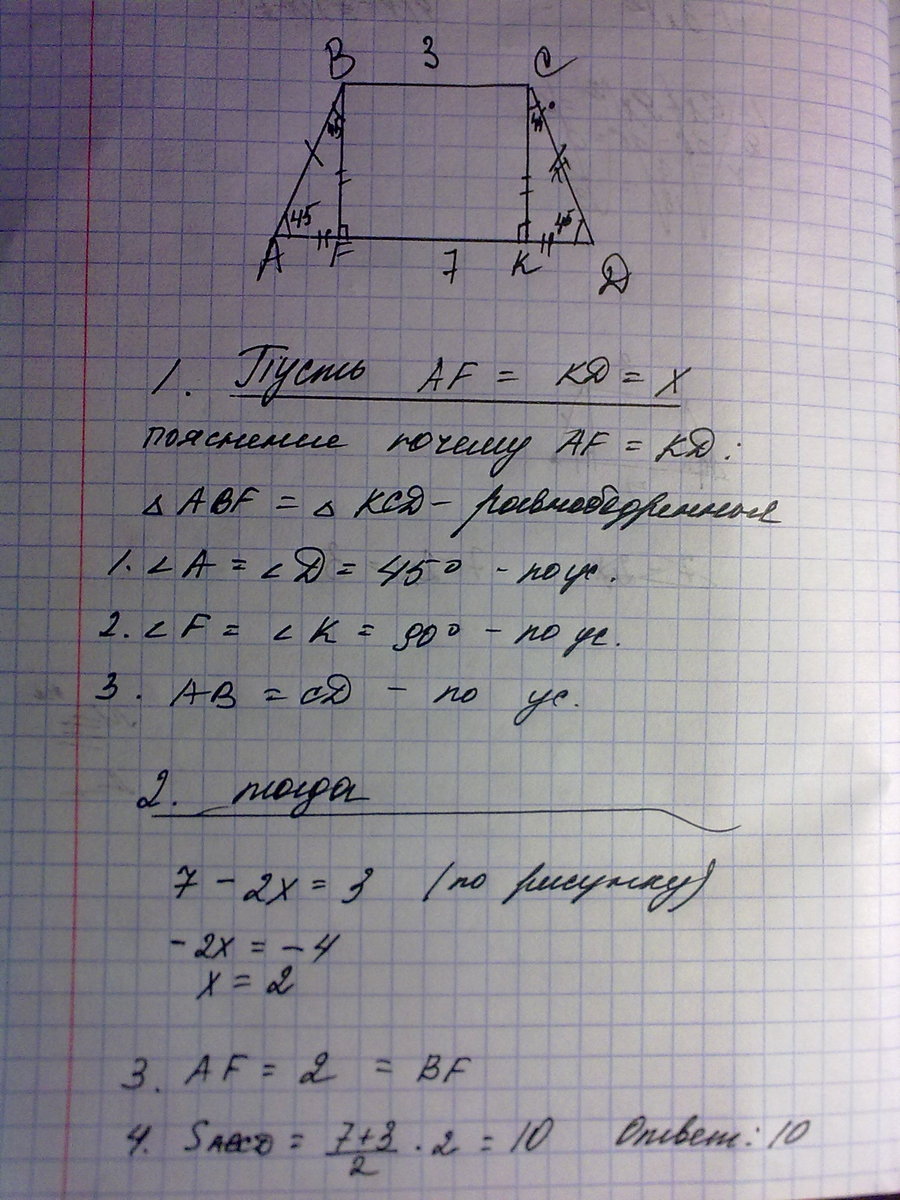 B 3 C
45 45
45 45
A F 7 K D
1. Пусть AF = KD = x
пояснение почему AF = KD:
△ ABF = △ KCD - равнобедренные
1. ∠A = ∠D = 45° - по ус.
2. ∠F = ∠K = 90° - по ус.
3. AB = CD - по ус.
2. тогда
7 - 2x = 3 (по рисунку)
-2x = -4
x = 2
3. AF = 2 = BF
4. SABCD = 7+3/2 · 2 = 10 Ответ: 10